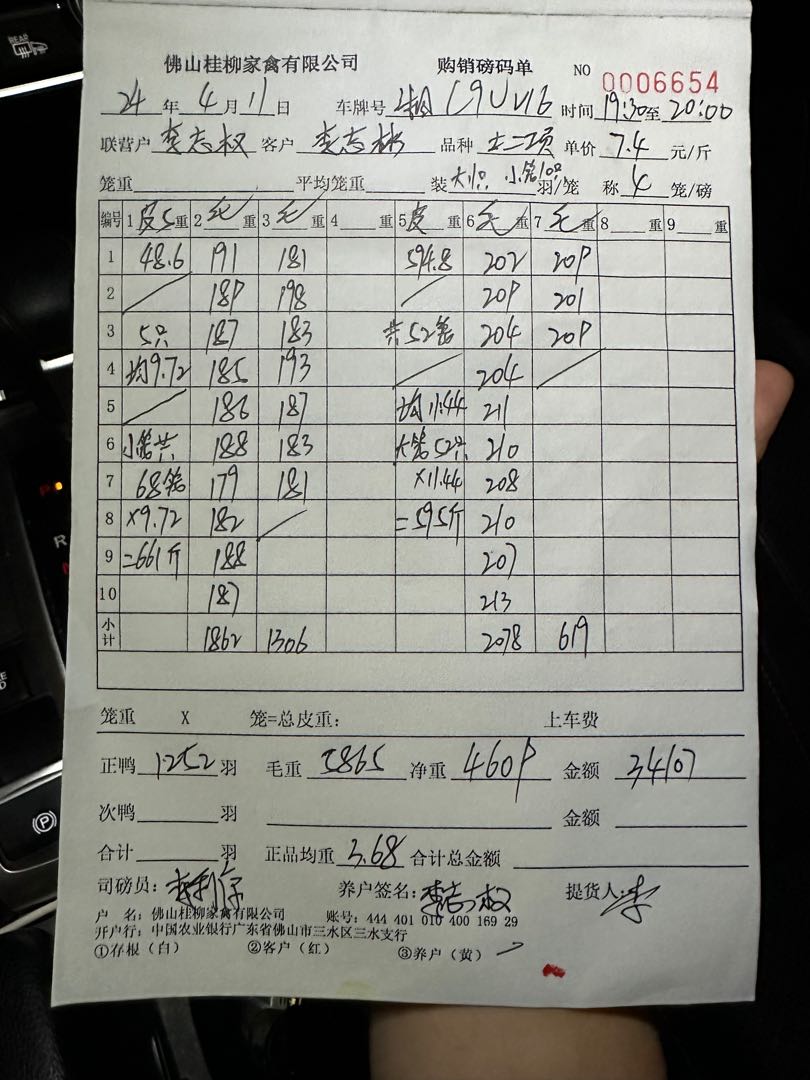 佛山桂柳家禽有限公司 购销磅码单 NO 0006654
24 年 4 月 11 日 车牌号 C9UV16 时间 19:30至 20:00
联营户 李志权 客户 李志彬 品种 土二项 单价 7.4 元/斤
笼重 平均笼重 装 小笼10只 羽/笼 称 4 笼/磅
编号 1 皮5 重 2 毛 重 3 毛 重 4 重 5 皮 重 6 毛 重 7 毛 重 8 重 9 重
1 48.6 191 181 594.8 202 209
2 189 198 209 201
3 5只 187 183 共52笼 204 209
4 均9.72 185 193 204
5 186 187 均11.44 211
6 小笼共 188 183 大笼52只 210
7 68笼 179 181 ×11.44 208
8 ×9.72 182 =595斤 210
9 =661斤 188 207
10 187 213
小计 1862 1306 2078 619
笼重 X 笼=总皮重: 上车费
正鸭 1252 羽 毛重 5865 净重 4609 金额 34107
次鸭 羽 金额
合计 羽 正品均重 3.68 合计总金额
司磅员: 养户签名: 李志权 提货人: 李
户 名: 佛山桂柳家禽有限公司 账号: 444 401 010 400 169 29
开户行: 中国农业银行广东省佛山市三水区三水支行
①存根（白） ②客户（红） ③养户（黄）
REAR
R
P